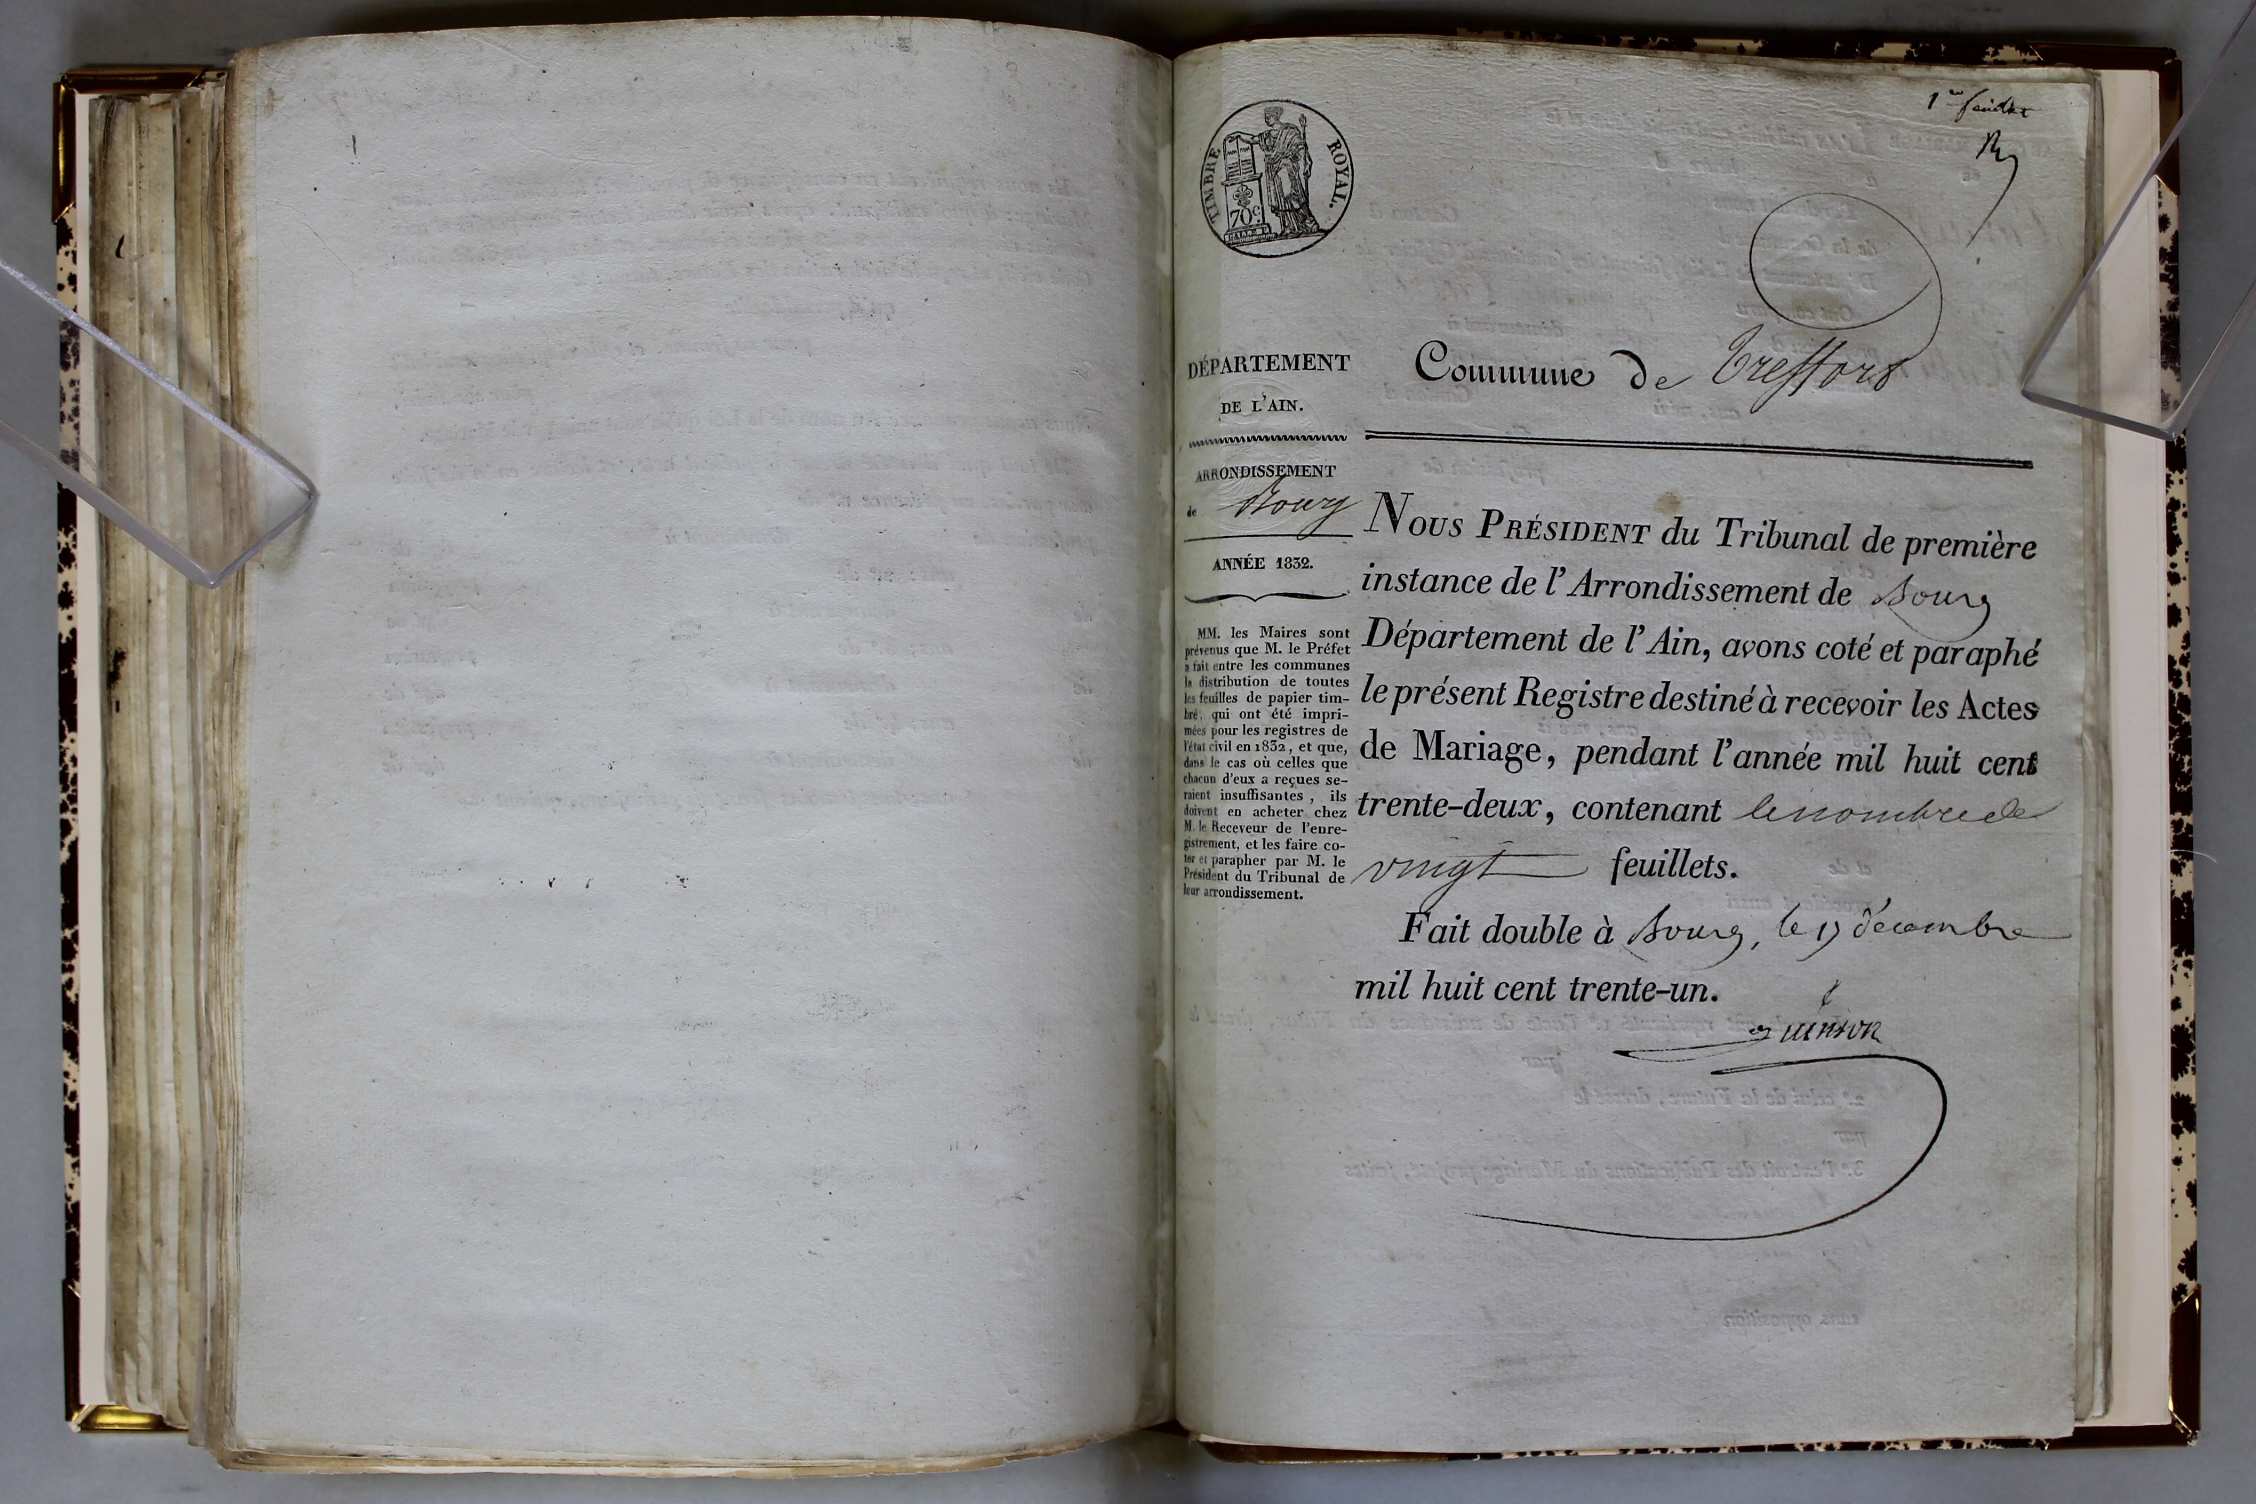 1er feuillet
TIMBRE ROYAL.
70c
DÉPARTEMENT
DE L'AIN.
ARRONDISSEMENT
de Bourg
ANNÉE 1832.
MM. les Maires sont
prévenus que M. le Préfet
a fait entre les communes
la distribution de toutes
les feuilles de papier tim-
bré, qui ont été impri-
mées pour les registres de
l'état civil en 1832, et que,
dans le cas où celles que
chacun d'eux a reçues se-
raient insuffisantes, ils
doivent en acheter chez
M. le Receveur de l'enre-
gistrement, et les faire co-
ter et parapher par M. le
Président du Tribunal de
leur arrondissement.
Commune de Treffort
NOUS PRÉSIDENT du Tribunal de première
instance de l'Arrondissement de Bourg
Département de l'Ain, avons coté et paraphé
le présent Registre destiné à recevoir les Actes
de Mariage, pendant l'année mil huit cent
trente-deux, contenant le nombre de
vingt feuillets.
Fait double à Bourg, le 17 décembre
mil huit cent trente-un.